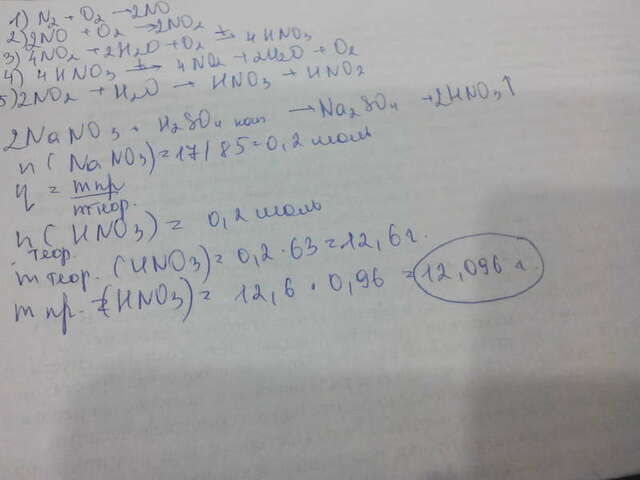 1) N2 + O2 → 2NO
2) 2NO + O2 → 2NO2
3) 4NO2 + 2H2O + O2 t→ 4HNO3
4) 4HNO3 t→ 4NO2 + 2H2O + O2
5) 2NO2 + H2O → HNO3 + HNO2
2NaNO3 + H2SO4 конц → Na2SO4 + 2HNO3↑
n(NaNO3) = 17/85 = 0,2 моль
η = m пр / m теор.
n теор. (HNO3) = 0,2 моль
m теор. (HNO3) = 0,2 · 63 = 12,6 г.
m пр. (HNO3) = 12,6 · 0,96 = 12,096 г.